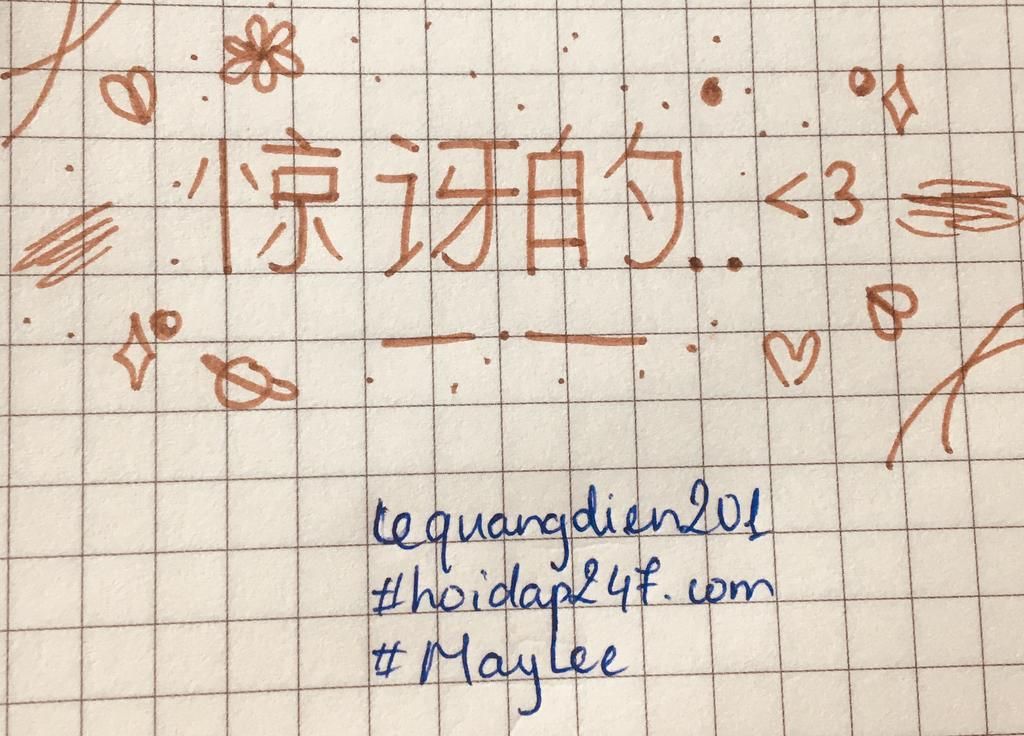 惊讶的.. <3
lequangdien201
#hoidap247.com
#MayLee